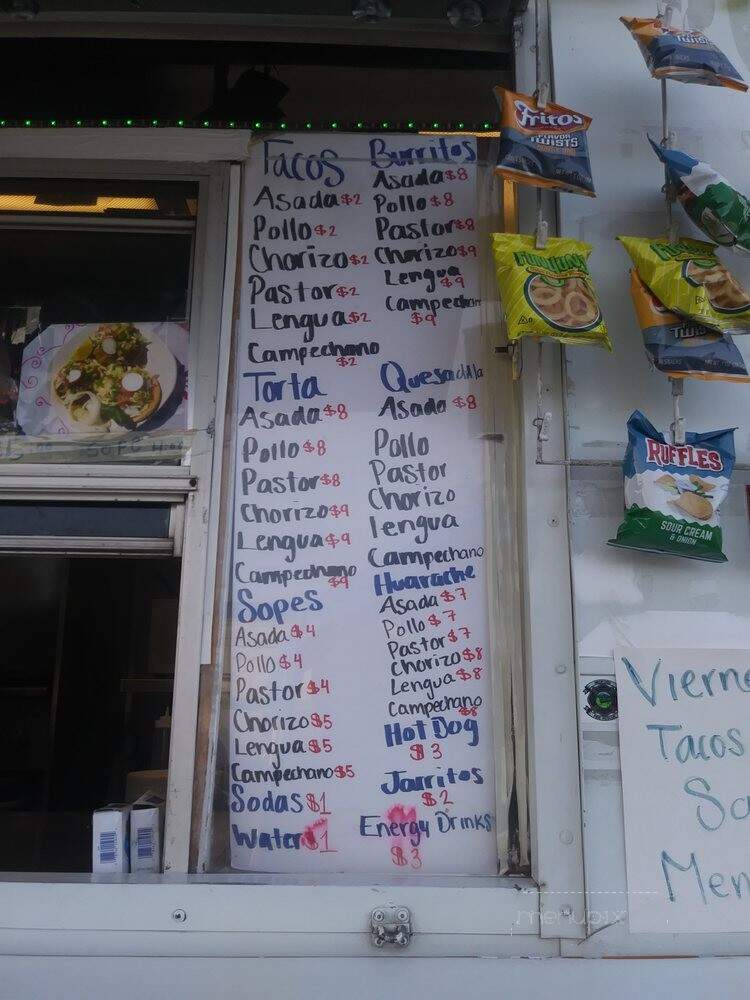 Tacos
Asada $2
Pollo $2
Chorizo $2
Pastor $2
Lengua $2
Campechano
$2
Burritos
Asada $8
Pollo $8
Pastor $8
Chorizo $9
Lengua
$9
Campechano
$9
Torta
Asada $8
Pollo $8
Pastor $8
Chorizo $9
Lengua $9
Campechano
$9
Quesadilla
Asada $8
Pollo
Pastor
Chorizo
lengua
Campechano
Sopes
Asada $4
Pollo $4
Pastor $4
Chorizo $5
Lengua $5
Campechano $5
Sodas $1
Water $1
Huarache
Asada $7
Pollo $7
Pastor $7
Chorizo $8
Lengua $8
Campechano
$8
Hot Dog
$3
Jarritos
$2
Energy Drinks
$3
Fritos
FLAVOR
TWISTS
FUNYUNS
TWISTS
RUFFLES
SOUR CREAM
& ONION
Vierne
Tacos
So
Men
menupix